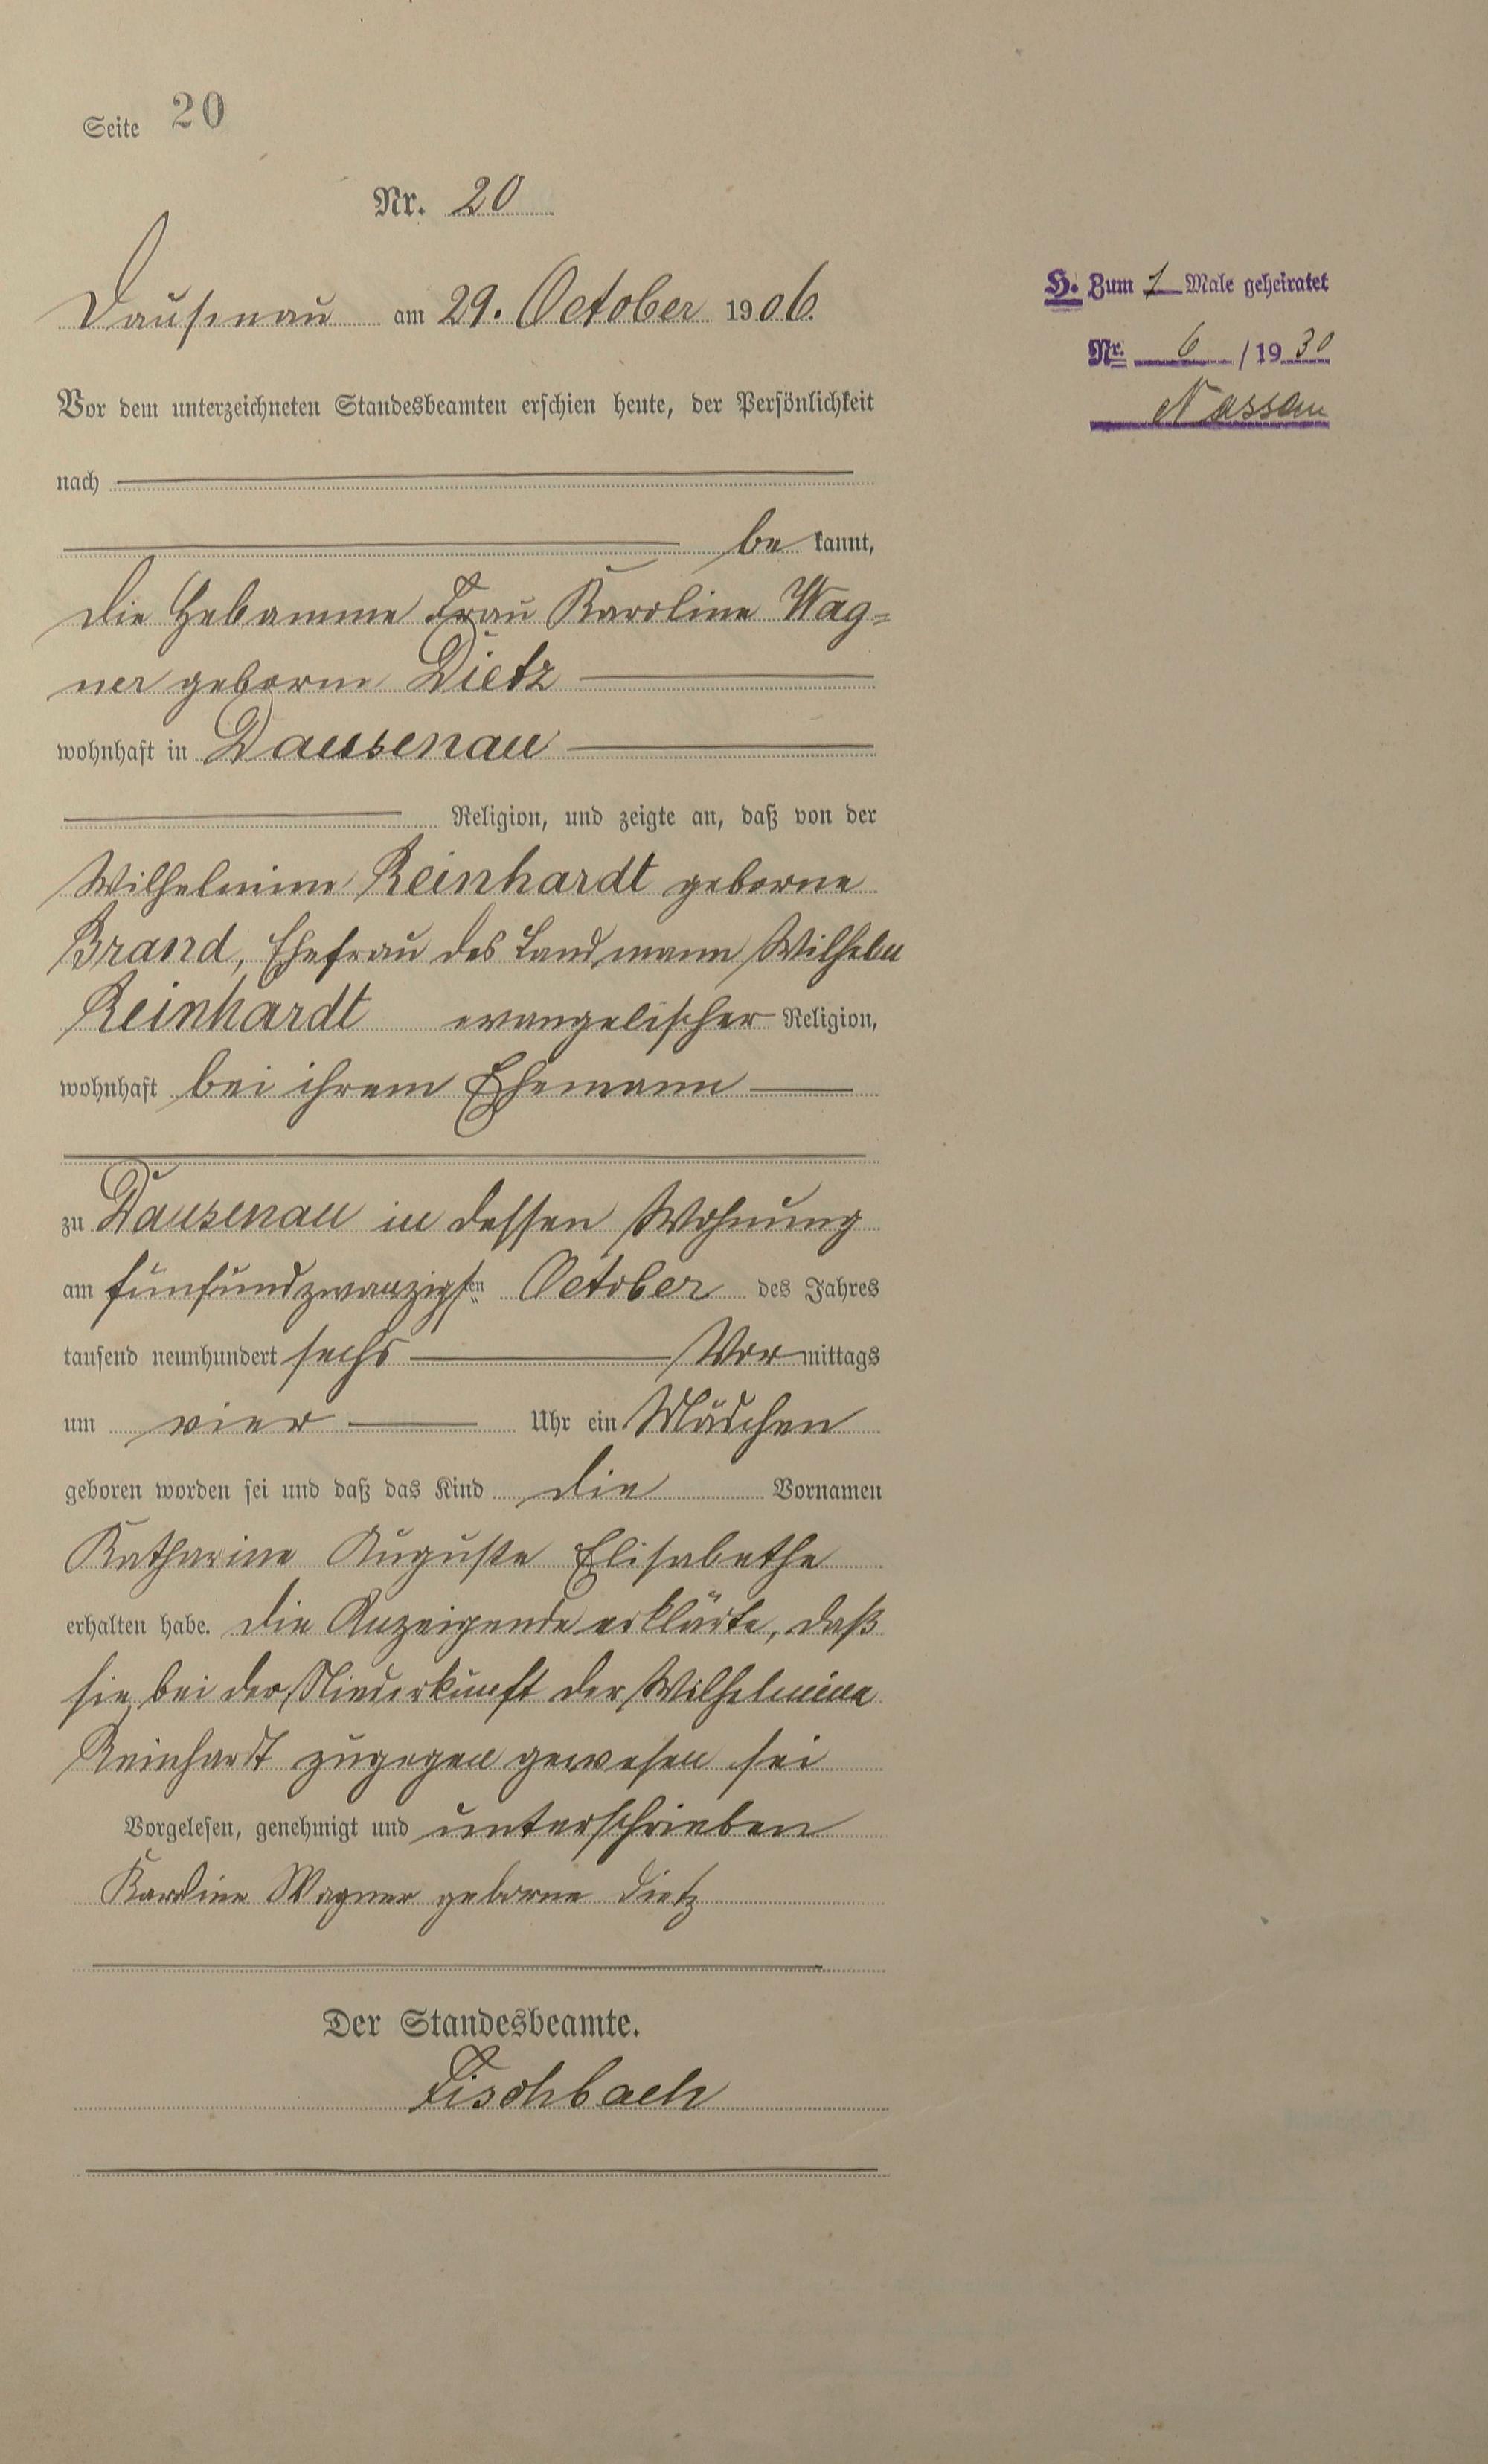 Seite 20
Nr. 20
Dausenau am 29. October 1906.
Vor dem unterzeichneten Standesbeamten erschien heute, der Persönlichkeit
nach
be kannt,
die Hebamme Frau Karoline Wag=
ner geborne Dietz
wohnhaft in Dausenau
Religion, und zeigte an, daß von der
Wilhelmine Reinhardt geborne
Brand, Ehefrau des Landmann Wilhelm
Reinhardt evangelischer Religion,
wohnhaft bei ihrem Ehemann
zu Dausenau in dessen Wohnung
am fünfundzwanzigsten October des Jahres
tausend neunhundert sechs Vormittags
um vier Uhr ein Mädchen
geboren worden sei und daß das Kind die Vornamen
Katharine Auguste Elisabethe
erhalten habe. Die Anzeigende erklärte, daß
sie bei der Niederkunft der Wilhelmine
Reinhardt zugegen gewesen sei
Vorgelesen, genehmigt und unterschrieben
Karoline Wagner geborne Dietz
Der Standesbeamte.
Fischbach
H. Zum 1 Male geheiratet
Nr. 6 / 1930
Nassau